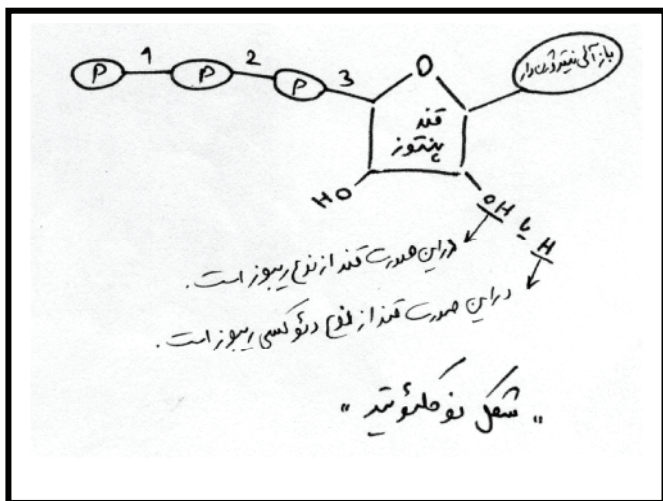 P 1 P 2 P 3 O
باز آلی نیتروژن دار
قند
پنتوز
HO
OH یا H
در این صورت قند از نوع ریبوز است.
در این صورت قند از نوع دئوکسی ریبوز است.
"شکل نوکلئوتید"